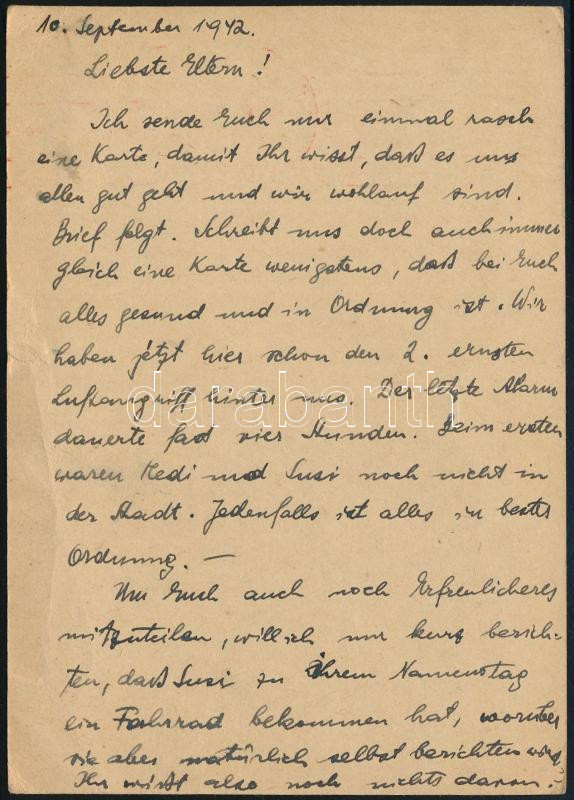 10. September 1942.
Liebste Eltern!
Ich sende Euch nur einmal rasch
eine Karte, damit Ihr wisst, daß es uns
allen gut geht und wir wohlauf sind.
Brief folgt. Schreibt uns doch auch immer
gleich eine Karte wenigstens, daß bei Euch
alles gesund und in Ordnung ist. Wir
haben jetzt hier schon den 2. ernsten
Luftangriff hinter uns. Der letzte Alarm
darabanth
dauerte fast vier Stunden. Beim ersten
waren Hedi und Susi noch nicht in
der Stadt. Jedenfalls ist alles in bester
Ordnung. —
Um Euch auch noch Erfreulicheres
mitzuteilen, will ich nur kurz berich-
ten, daß Susi zu ihrem Namenstag
ein Fahrrad bekommen hat, worüber
sie aber natürlich selbst berichten wird.
Ihr wisst also noch nichts davon.